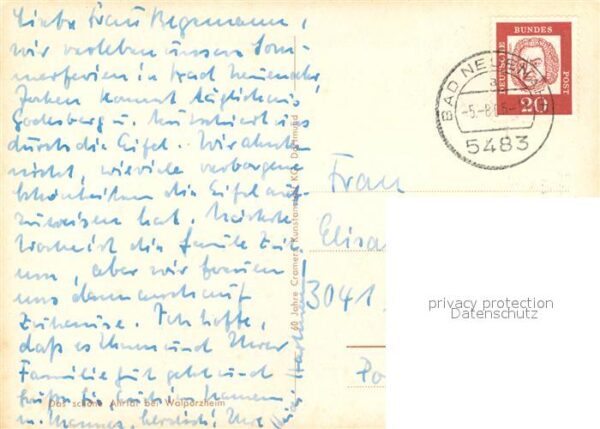 Liebe Frau Begemann,
wir verleben unseren Som-
merferien in Bad Neuenahr,
kommt täglich aus
Godesberg u. kutschiert uns
durch die Eifel. Wir ahnten
nicht, wieviele verborgene
Schönheiten die Eifel auf-
zuweisen hat. Nächste
Woche ist die
um, aber wir freuen
uns dann auch auf
Zuhause. Ich hoffe,
daß es Ihnen und Ihrer
Familie gut geht und
grüße Sie, auch im Namen
m. Mannes, herzlich! Ihre
Das schöne Ahrtal bei Walporzheim
60 Jahre Cramers Kunstanstalt KG, Dortmund
DEUTSCHE
BUNDES
POST
20
BAD NEUEN
5483
Frau
Elisa
3041
privacy protection
Datenschutz